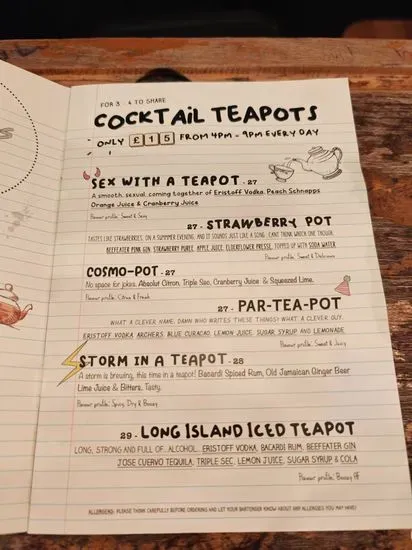 FOR 3 - 4 TO SHARE
COCKTAIL TEAPOTS
ONLY £15 FROM 4PM - 9PM EVERY DAY
SEX WITH A TEAPOT - 27
A smooth, sexual coming together of Eristoff Vodka, Peach Schnapps
Orange Juice & Cranberry Juice
Flavour profile: Sweet & Sexy
27 - STRAWBERRY POT
TASTES LIKE STRAWBERRIES, ON A SUMMMER EVENING, AND IT SOUNDS JUST LIKE A SONG. CAN'T THINK WHICH ONE THOUGH.
BEEFEATER PINK GIN, STRAWBERRY PUREE, APPLE JUICE, ELDERFLOWER PRESSE, TOPPED UP WITH SODA WATER
Flavour profile: Sweet & Delicious
COSMO-POT - 27
No space for jokes. Absolut Citron, Triple Sec, Cranberry Juice & Squeezed Lime.
Flavour profile: Citrus & Fresh
27 - PAR-TEA-POT
WHAT A CLEVER NAME. DAMN WHO WRITES THESE THINGS? WHAT A CLEVER GUY.
ERISTOFF VODKA, ARCHERS, BLUE CURACAO, LEMON JUICE, SUGAR SYRUP AND LEMONADE
Flavour profile: Sweet & Juicy
STORM IN A TEAPOT - 28
A storm is brewing, this time in a teapot! Bacardi Spiced Rum, Old Jamaican Ginger Beer
Lime Juice & Bitters. Tasty.
Flavour profile: Spicy, Dry & Boozy
29 - LONG ISLAND ICED TEAPOT
LONG, STRONG AND FULL OF.. ALCOHOL. ERISTOFF VODKA, BACARDI RUM, BEEFEATER GIN
JOSE CUERVO TEQUILA, TRIPLE SEC, LEMON JUICE, SUGAR SYRUP & COLA
Flavour profile: Boozy AF
ALLERGENS: PLEASE THINK CAREFULLY BEFORE ORDERING AND LET YOUR BARTENDER KNOW ABOUT ANY ALLERGIES YOU MAY HAVE.